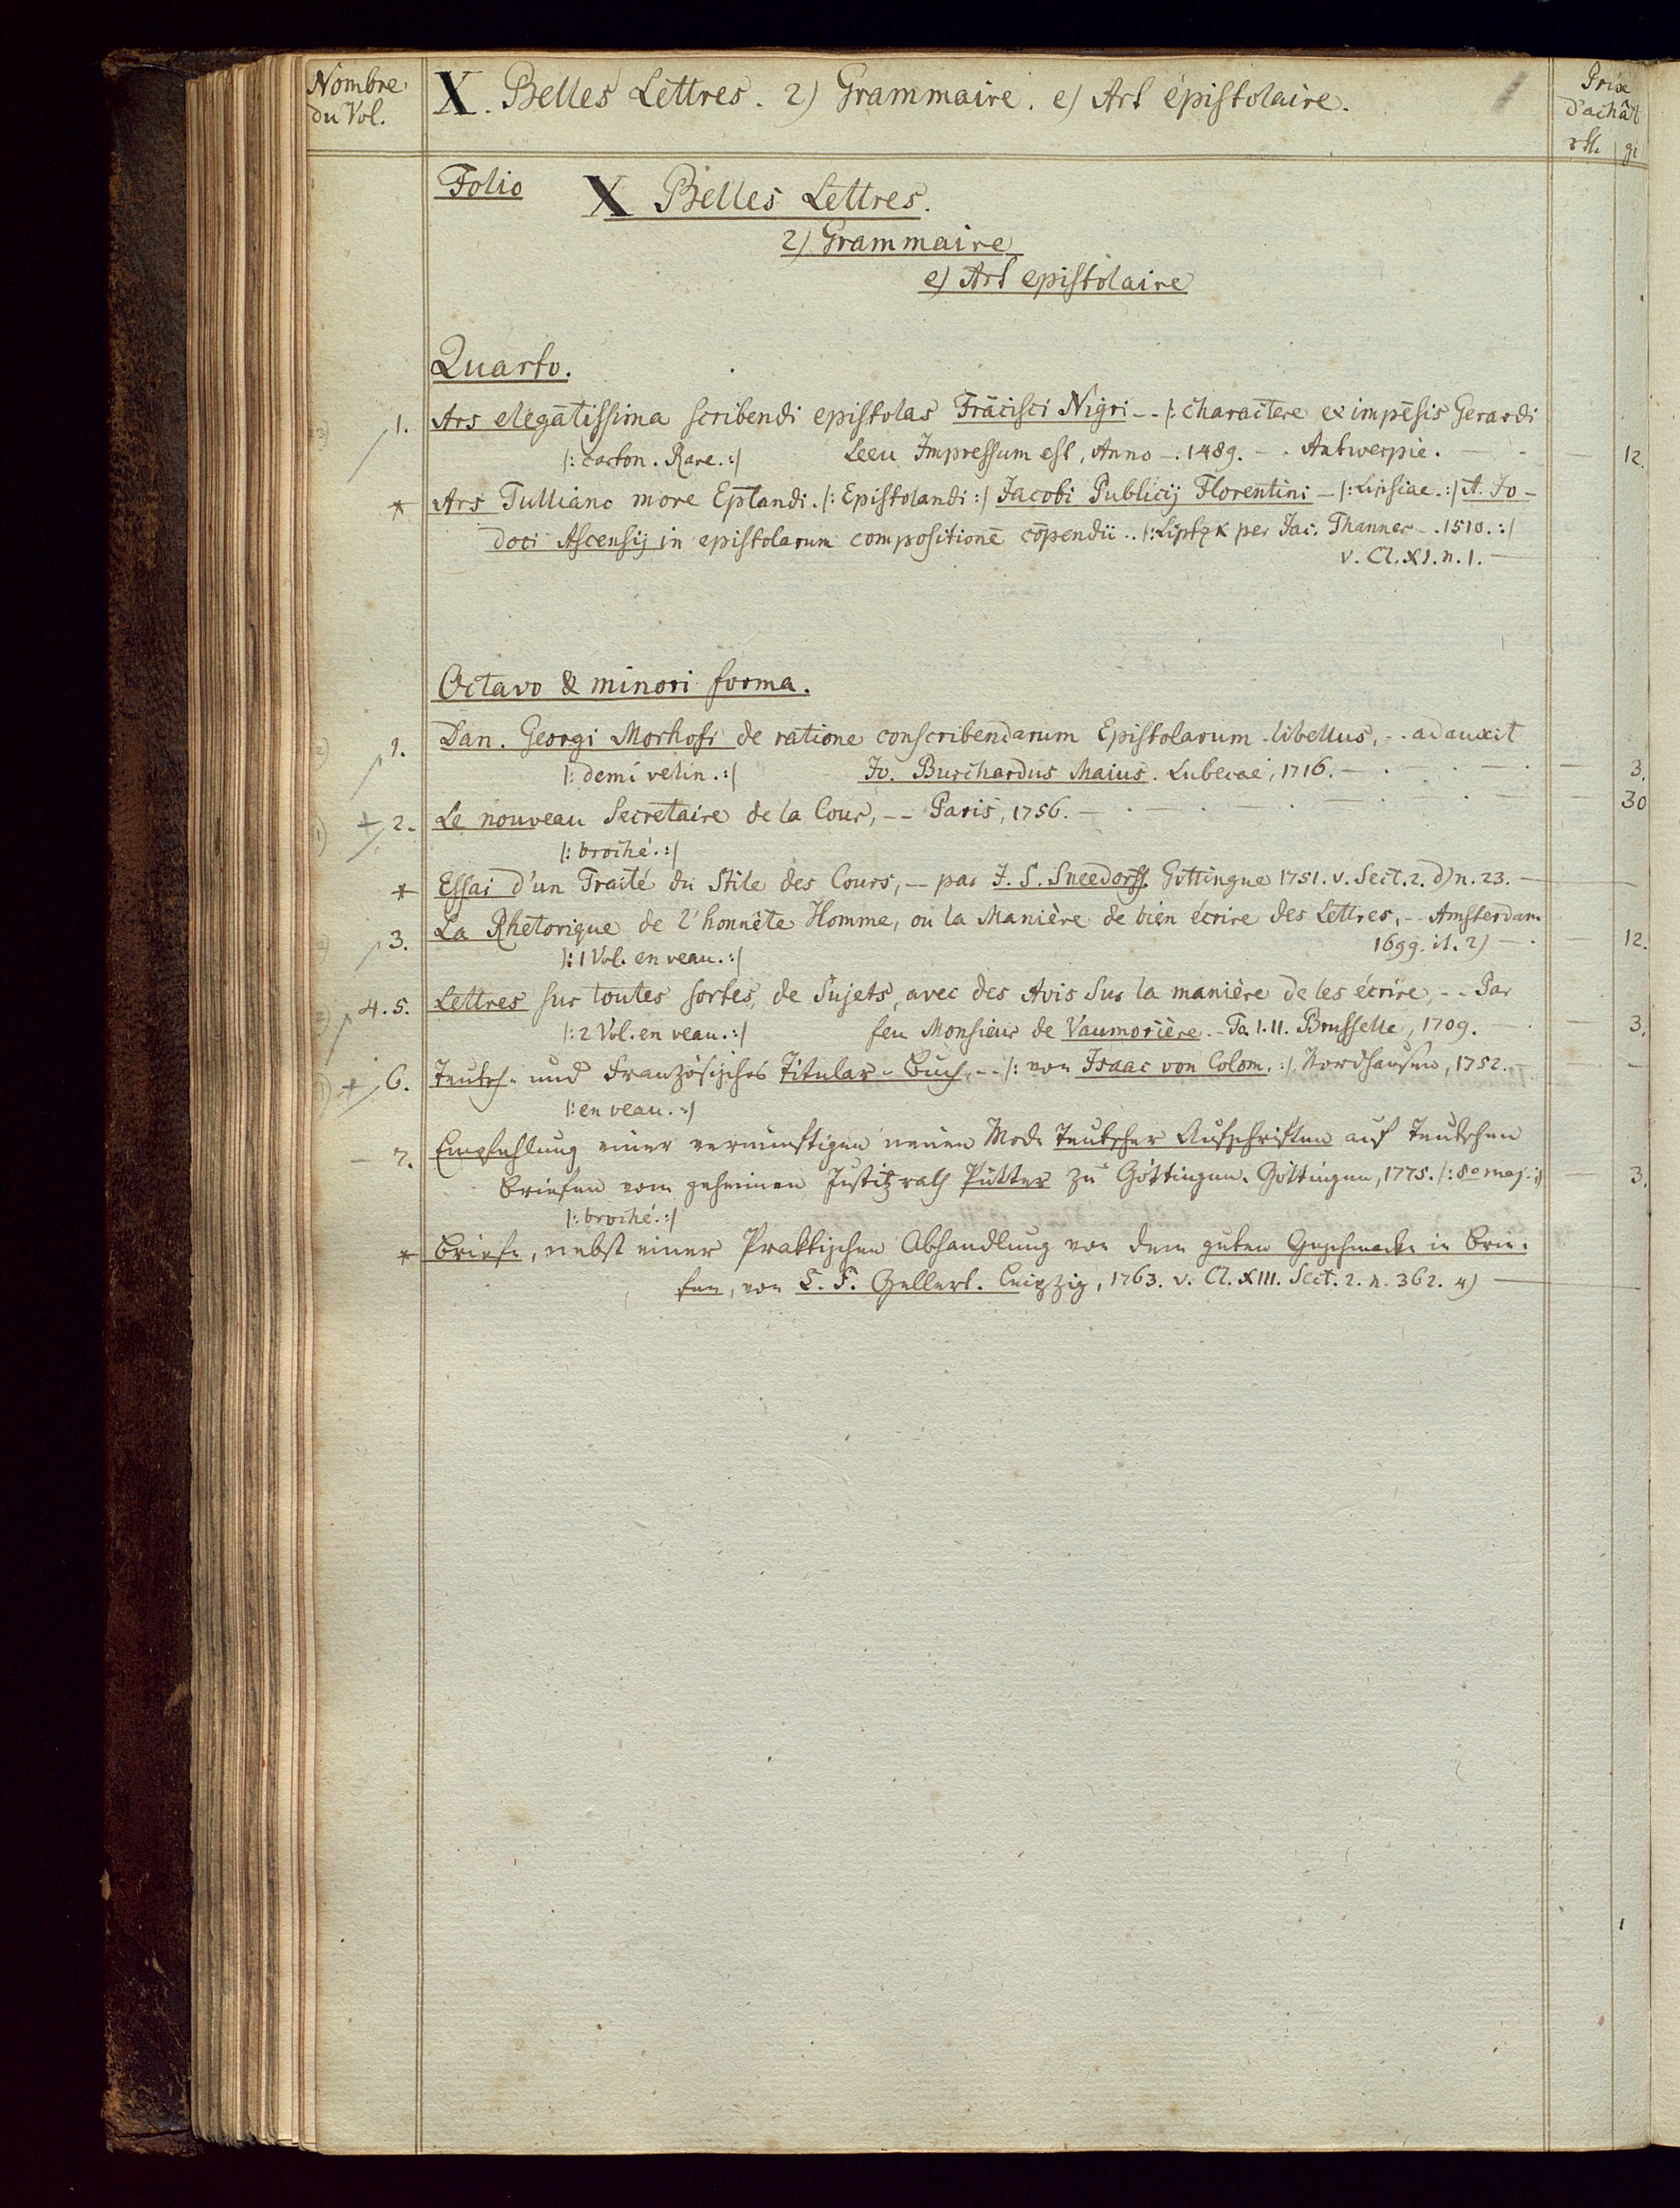 Nombre du Vol.
X. Belles Lettres. 2) Grammaire. e) Art épistolaire.
Prix d'achât
rthl. gr
Folio
X Belles Lettres.
2) Grammaire
e) Art epistolaire
Quarto.
1. Ars elegātissima scribendi epistolas Frācisci Nigri -- /: charactere ex impēsis Gerardi
/: carton. Rare. :/ Leeu Impressum est, Anno -. 1489. - . Antwerpiē. — - — 12.
* Ars Tulliano more Eptandi. /: Epistolandi :/ Jacobi Publicij Florentini - /: Lipsiae. :/ It. Jo-
doci Ascensij in epistolarum compositionē cōpendiū .. /: Liptzk per Jac. Thanner -. 1510. :/
v. Cl. XI. n. 1. —
Octavo & minori forma.
1. Dan. Georgi Morhofi de ratione conscribendarum Epistolarum libellus, -. adauxit
/: demi velin. :/ Jo. Burchardus Maius. Lubecae, 1716. — 3.
+ 2. Le nouveau Secretaire de la Cour, -- Paris, 1756. — 30
/: broché. :/
* Essai d'un Traité du Stile des Cours, -- par J. S. Sneedorff. Gottingue 1751. v. Sect. 2. d) n. 23. —
3. La Rhetorique de l'honnête Homme, ou la Manière de bien écrire des Lettres, -. Amsterdam
/: 1 Vol. en veau. :/ 1699. il. 2) —. — 12.
4. 5. Lettres sur toutes sortes, de Sujets, avec des Avis sur la manière de les écrire, -. Par
/: 2 Vol. en veau. :/ feu Monsieur de Vaumorière. - To. I. II. Brusselle, 1709. — 3.
+ 6. Teutsch- und Französisches Titular-Buch, -- /: von Isaac von Colom. :/ Nordhausen, 1752. —
/: en veau. :/
— 7. Empfehlung einer vernünftigen neuen Mode Teutscher Aufschriften auf Teutschen
Briefen vom geheimen Justitzrath Pütter zu Göttingen. Göttingen, 1775. /: 8o maj. :/ 3.
/: broché. :/
* Briefe, nebst einer Praktischen Abhandlung von dem guten Geschmacke in Brie-
fen, von C. F. Gellert. Leipzig, 1763. v. Cl. XIII. Sect. 2. n. 362. 4) —